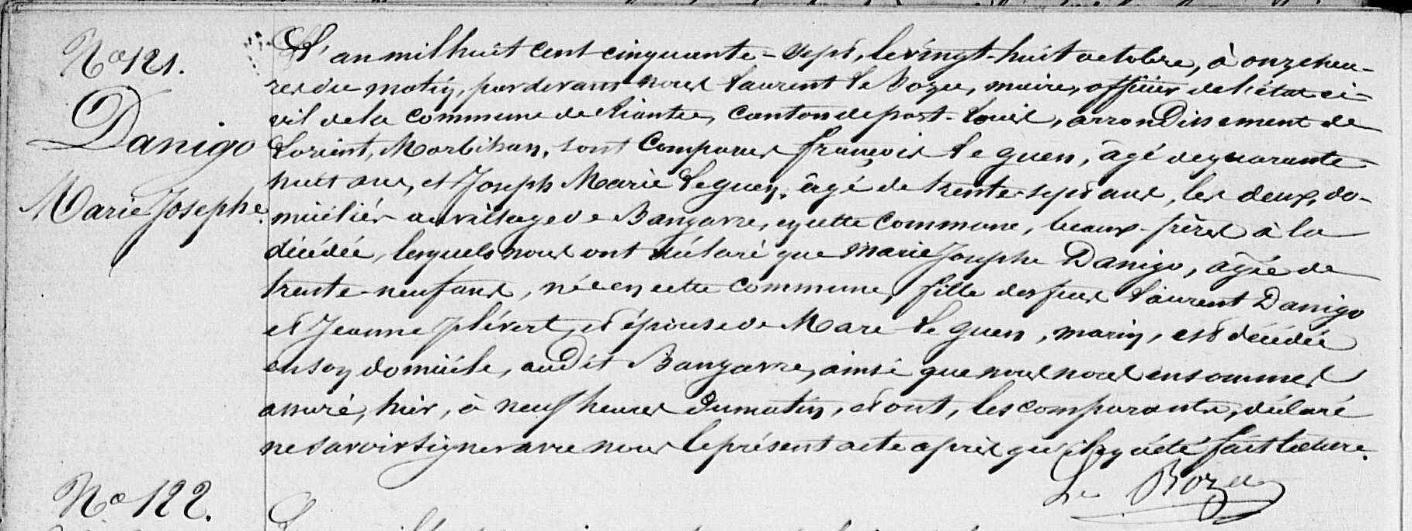 No 121.
Danigo
Marie Josephe.
L'an mil huit cent cinquante-sept, le vingt-huit octobre, à onze heu-
res du matin, pardevant nous Laurent Le Bozec, maire, officier de l'état ci-
vil de la commune de Riantec, canton de port-Louis, arrondissement de
Lorient, Morbihan, sont comparus françois Le guen, âgé de quarante-
huit ans, et Joseph Marie Le guen, âgé de trente-sept ans, les deux do-
miciliés au village de Bangavre, en cette commune, beaux-frères à la
décédée, lesquels nous ont déclaré que Marie Josephe Danigo, âgée de
trente-neuf ans, née en cette commune, fille des feux Laurent Danigo
et Jeanne Plévert, et épouse de Marc Le guen, marin, est décédée
en son domicile, audit Bangavre, ainsi que nous nous en sommes
assuré, hier, à neuf heures du matin, et ont, les comparants, déclaré
ne savoir signer avec nous le présent acte après qu'il en a été fait lecture.
Le Bozec
No 122.